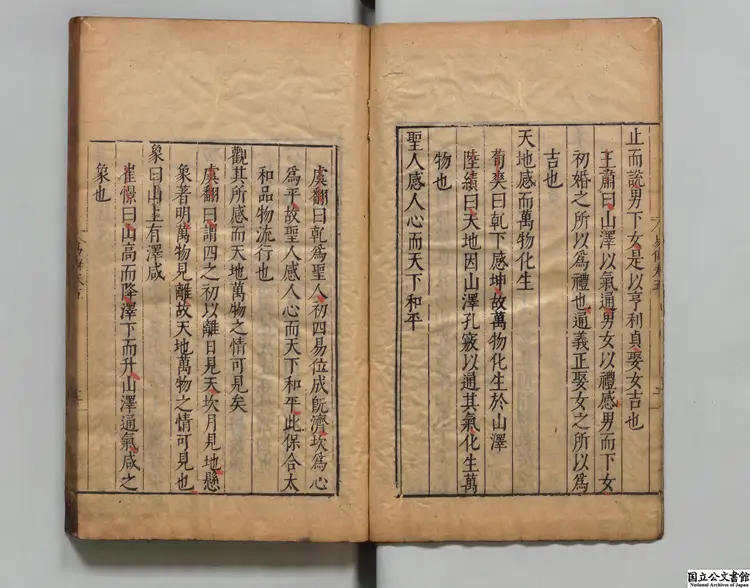 止而說男下女是以亨利貞娶女吉也
王肅曰山澤以氣通男女以禮感男而下女
初婚之所以為禮也通義正娶女之所以為
吉也
天地感而萬物化生
荀爽曰乾下感坤故萬物化生於山澤
陸績曰天地因山澤孔竅以通其氣化生萬
物也
聖人感人心而天下和平
虞翻曰乾為聖人初四易位成旣濟坎為心
為平故聖人感人心而天下和平此保合太
和品物流行也
觀其所感而天地萬物之情可見矣
虞翻曰謂四之初以離日見天坎月見地懸
象著明萬物見離故天地萬物之情可見也
象曰山上有澤咸
崔憬曰山高而降澤下而升山澤通氣咸之
象也
国立公文書館
National Archives of Japan